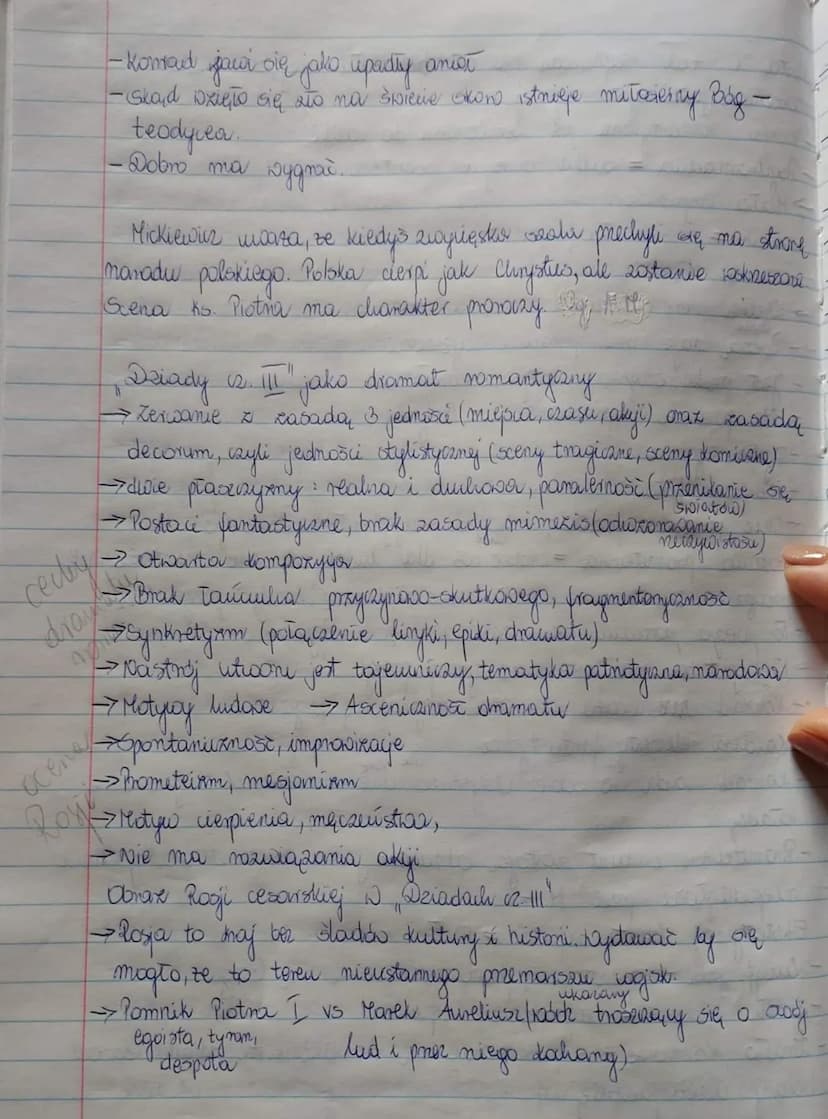 - Konrad jawi się jako upadły anioł
- Skąd wzięło się zło na świecie skoro istnieje miłosierny Bóg -
teodycea.
- Dobro ma wygrać.
Mickiewicz uważa, że kiedyś zwycięska szala przechyli się na stronę
narodu polskiego. Polska cierpi jak Chrystus, ale zostanie wskrzeszona
Scena ks. Piotra ma charakter proroczy.
"Dziady cz. III" jako dramat romantyczny
→ Zerwanie z zasadą 3 jedności (miejsca, czasu, akcji) oraz zasadą
decorum, czyli jedności stylistycznej (sceny tragiczne, sceny komiczne)
→ dwie płaszczyzny: realna i duchowa, paralerność (przenikanie się
światów)
→ Postaci fantastyczne, brak zasady mimezis (odwzorowanie
rzeczywistości)
→ Otwarta kompozycja
cechy
dramatu
→ Brak łańcucha przyczynowo-skutkowego, fragmentaryczność
→ Synkretyzm (połączenie liryki, epiki, dramatu)
→ Nastrój utworu jest tajemniczy, tematyka patriotyczna, narodowa
→ Motywy ludowe → Asceniczność dramatu
→ Spontaniczność, improwizacje
→ Prometeizm, mesjanizm
ocena
Rosji
→ Motyw cierpienia, męczeństwa,
→ Nie ma rozwiązania akcji
Obraz Rosji cesarskiej w "Dziadach cz III"
→ Rosja to kraj bez śladów kultury i historii. Wydawać by się
mogło, że to teren nieustannego przemarszu wojsk.
→ Pomnik Piotra I vs Marek Aureliusz (wódz ukazany troszczący się o swój
egoista, tyran, lud i przez niego kochany)
despota